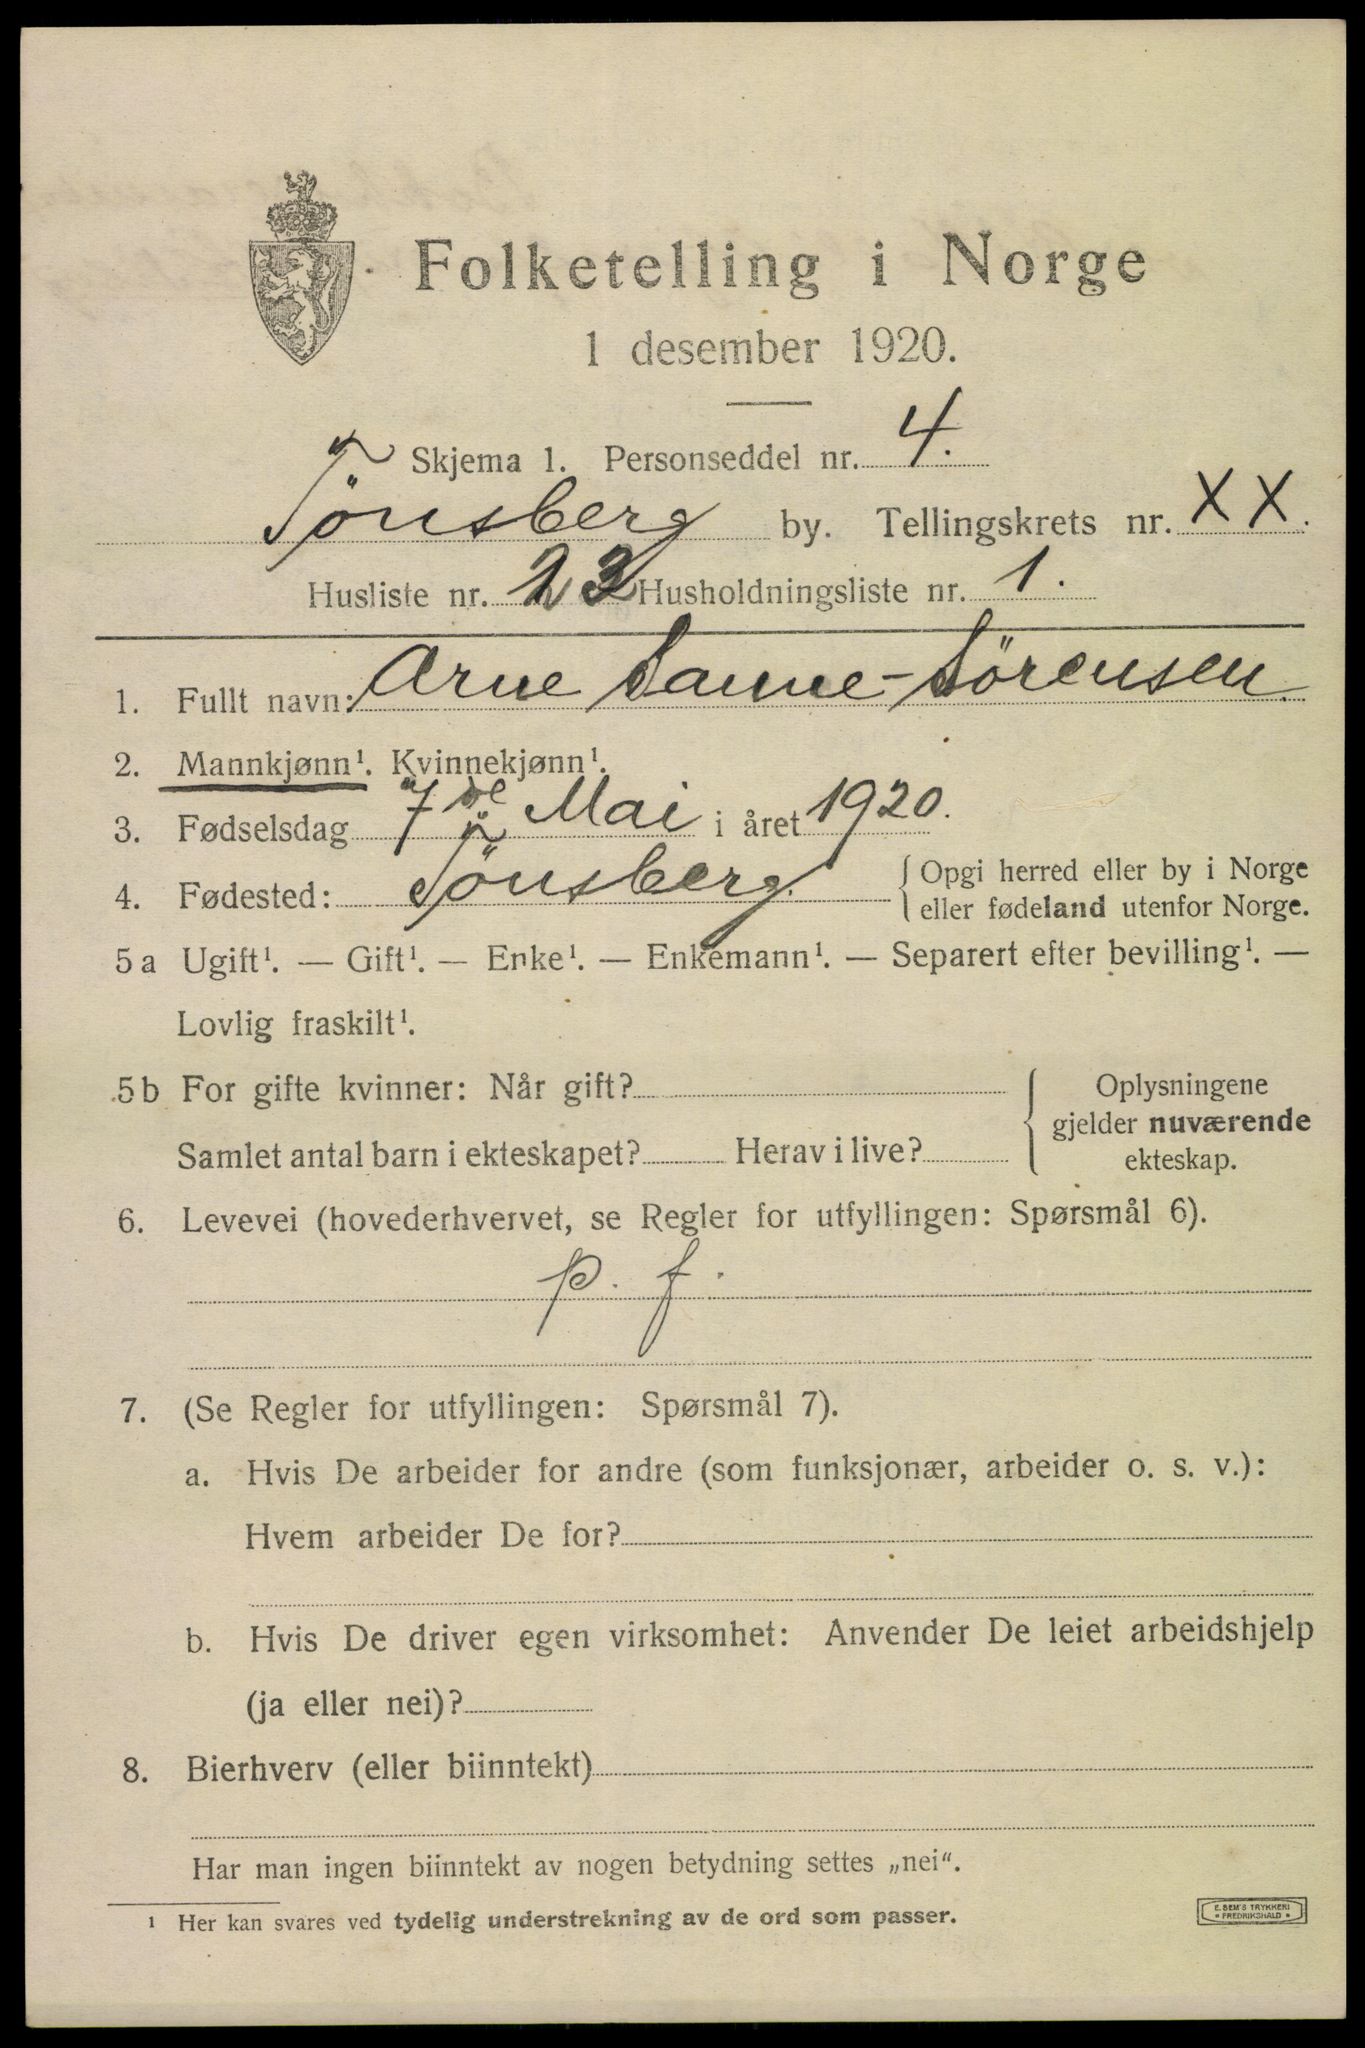 Folketelling i Norge
1 desember 1920.
Skjema 1. Personseddel nr. 4.
Tönsberg by. Tellingskrets nr. XX.
Husliste nr. 23 Husholdningsliste nr. 1.
1. Fullt navn: Arne Sanne-Sörensen.
2. Mannkjønn¹. Kvinnekjønn¹.
3. Fødselsdag 7de Mai i året 1920.
4. Fødested: Tönsberg. { Opgi herred eller by i Norge
eller fødeland utenfor Norge.
5 a Ugift¹. — Gift¹. — Enke¹. — Enkemann¹. — Separert efter bevilling¹. —
Lovlig fraskilt¹.
5 b For gifte kvinner: Når gift?
Samlet antal barn i ekteskapet? Herav i live?
{ Oplysningene
gjelder nuværende
ekteskap.
6. Levevei (hovederhvervet, se Regler for utfyllingen: Spørsmål 6).
p. f.
7. (Se Regler for utfyllingen: Spørsmål 7).
a. Hvis De arbeider for andre (som funksjonær, arbeider o. s. v.):
Hvem arbeider De for?
b. Hvis De driver egen virksomhet: Anvender De leiet arbeidshjelp
(ja eller nei)?
8. Bierhverv (eller biinntekt)
Har man ingen biinntekt av nogen betydning settes „nei“.
¹ Her kan svares ved tydelig understrekning av de ord som passer.
E. SEM'S TRYKKERI
* FREDRIKSHALD *